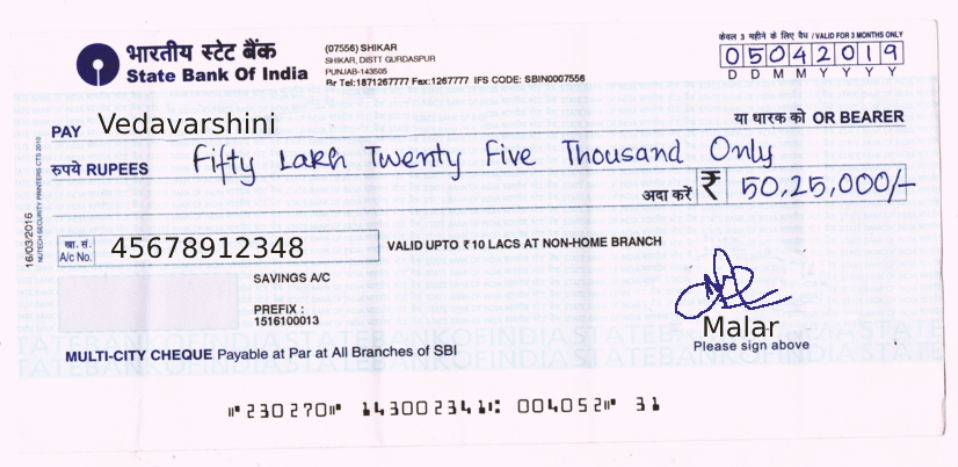 भारतीय स्टेट बैंक
State Bank Of India
(07556) SHIKAR
SHIKAR, DISTT GURDASPUR
PUNJAB-143505
Br Tel:1871267777 Fax:1267777 IFS CODE: SBIN0007556
केवल 3 महीने के लिए वैध / VALID FOR 3 MONTHS ONLY
05042019
D D M M Y Y Y Y
PAY Vedavarshini या धारक को OR BEARER
रुपये RUPEES Fifty Lakh Twenty Five Thousand Only
अदा करें ₹ 50,25,000/-
16/03/2016
NUTECH SECURITY PRINTERS CTS 2010
खा. सं.
A/c No. 45678912348
VALID UPTO ₹ 10 LACS AT NON-HOME BRANCH
SAVINGS A/C
PREFIX :
1516100013
Malar
Please sign above
MULTI-CITY CHEQUE Payable at Par at All Branches of SBI
STATE BANK OF INDIA STATE BANK OF INDIA STATE
⑈230270⑈ 143002341⑆ 004052⑈ 31